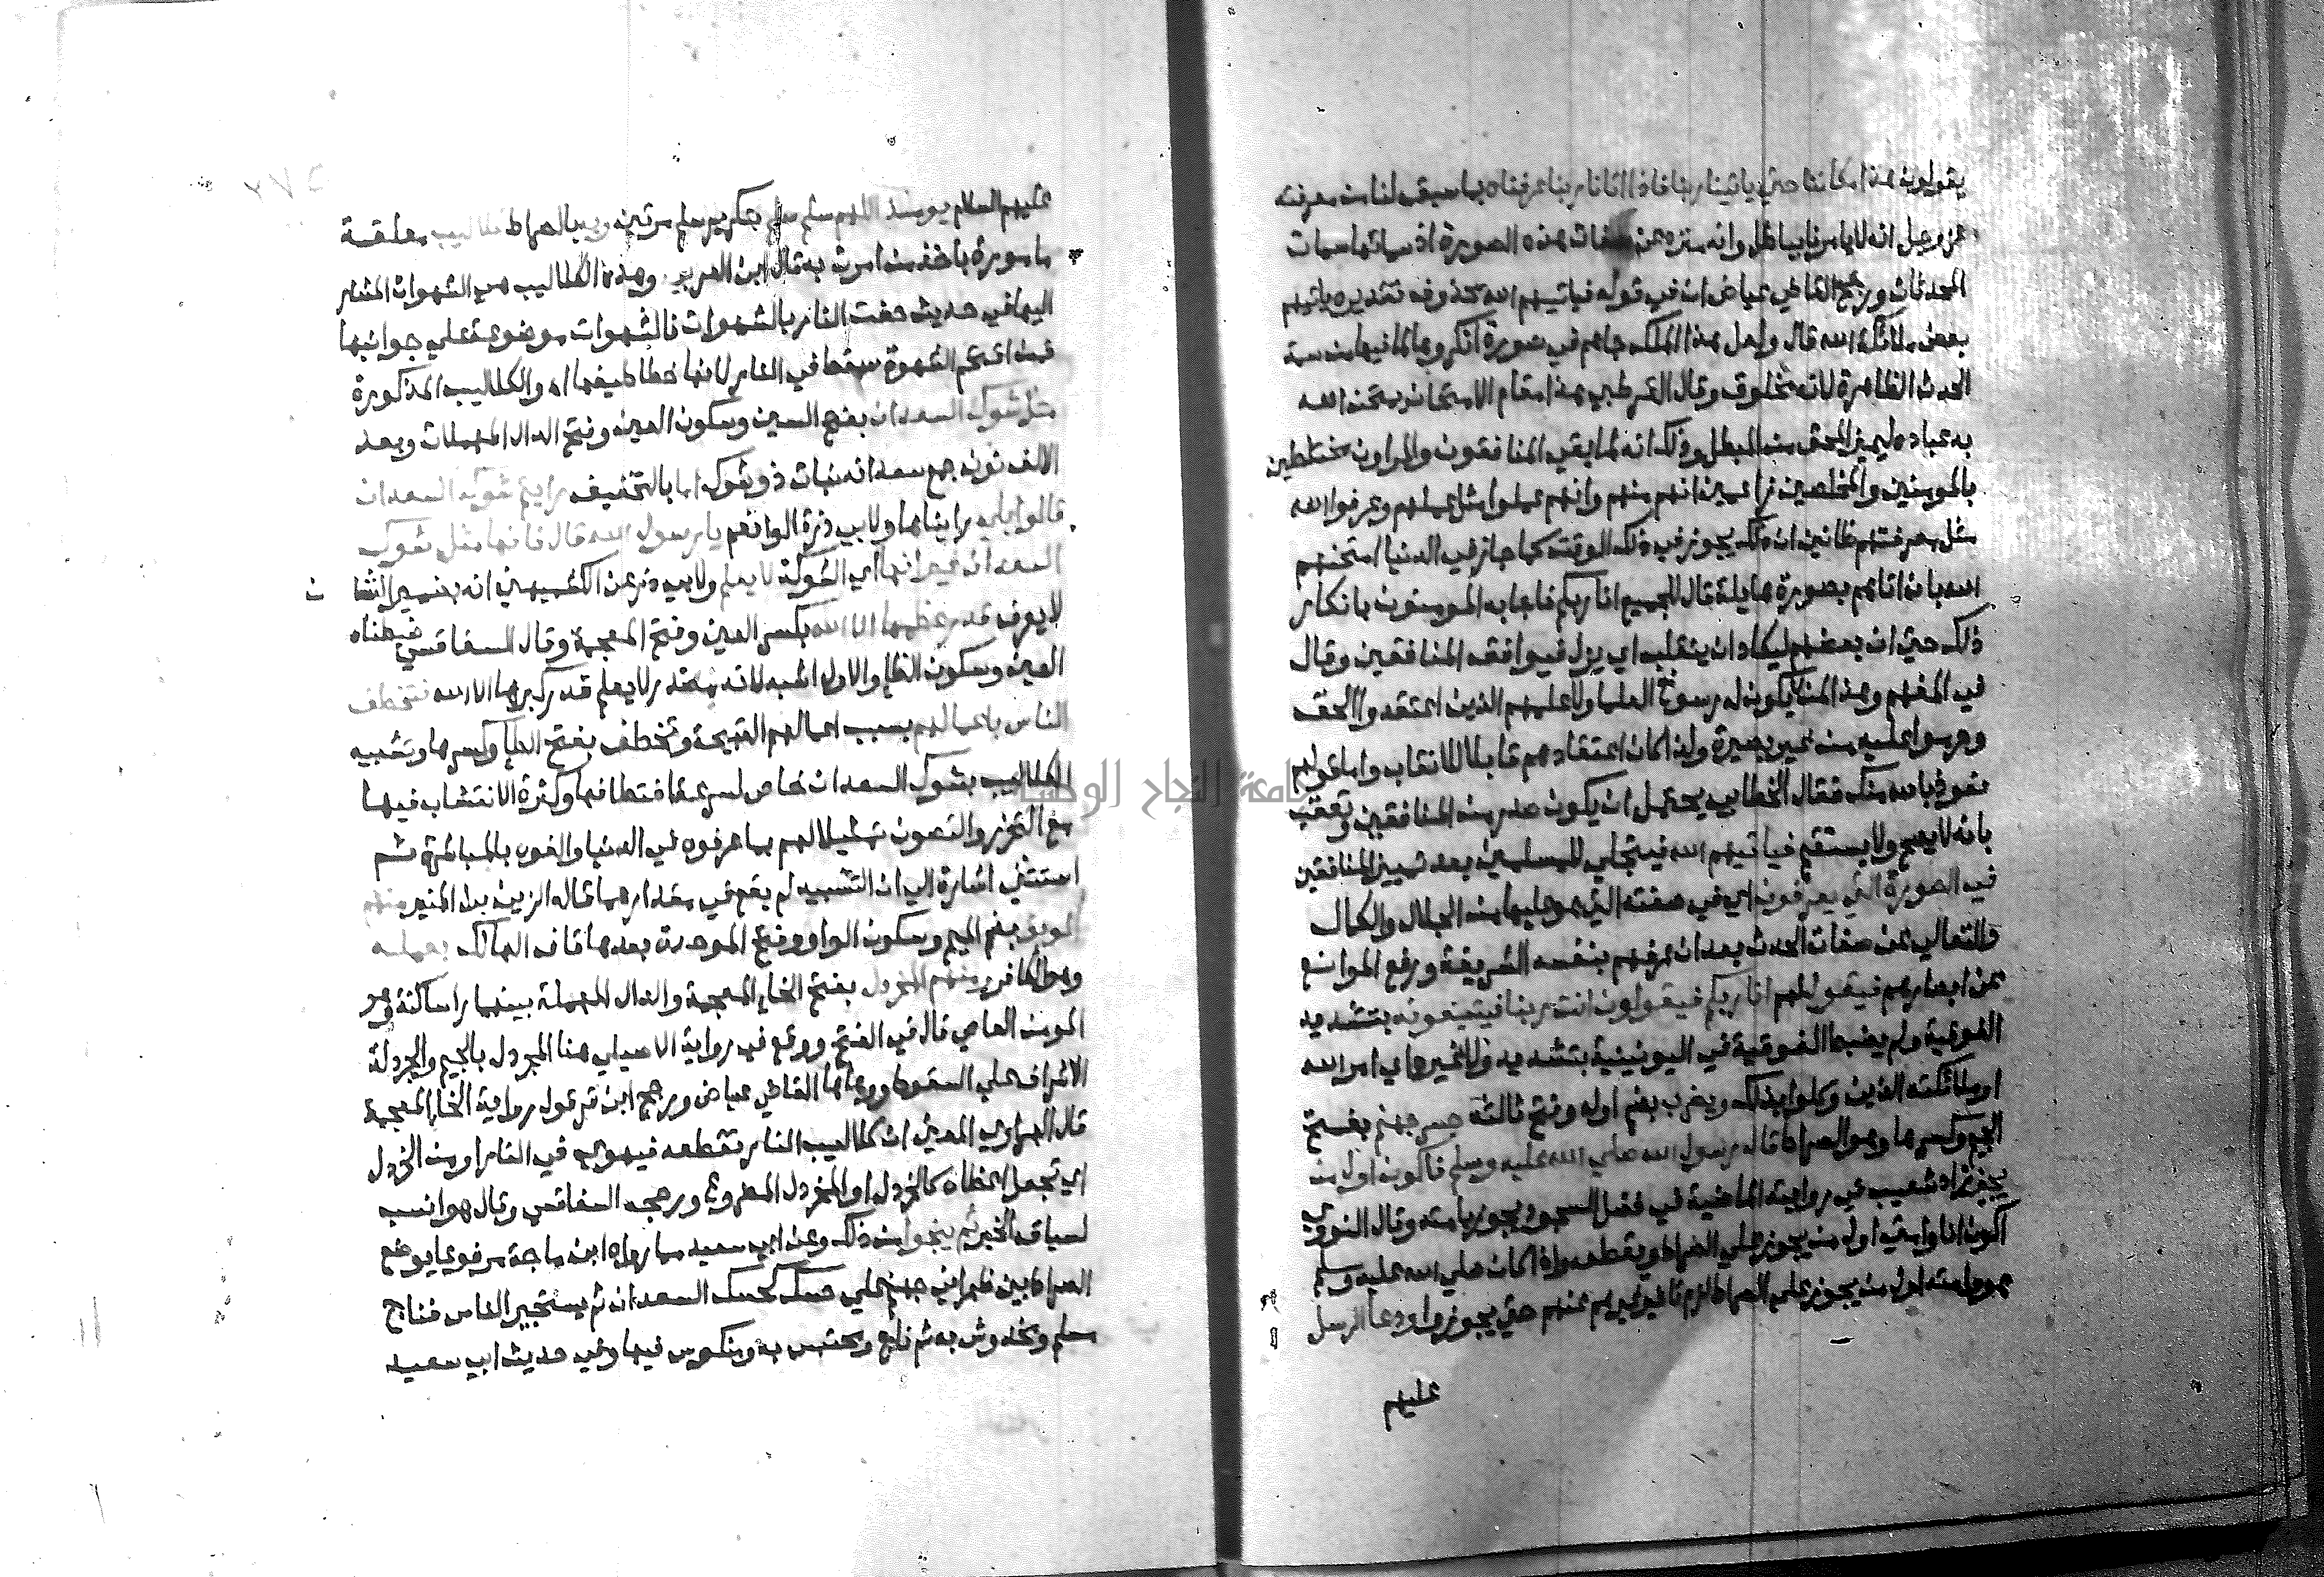 يقولون هذا مكاننا حتي ياتينا ربنا فاذا اتانا ربنا عرفناه بما سبق لنا من معرفته
عز وجل انه لا يامرنا بباطل وانه منزه عن صفات هذه الصورة اذ سماتها سمات
المحدثات ورجح القاضي عياض ان في قوله فياتيهم الله محذوفه تقديره ياتيهم
بعض ملائكة الله قال ولعل هذا الملك جاهم في صورة انكروها لما فيها من سمة
الحدث الظاهرة لانه مخلوق وقال القرطبي هذا مقام الامتحان يمتحن الله
به عباده ليميز المحق من المبطل وذلك انه لما بقي المنافقون والمراون مختلطين
بالمومنين والمخلصين زاعمين انهم منهم وانهم عملوا مثل عملهم وعرفوا الله
مثل معرفتهم ظانين ان ذلك يجوز في ذلك الوقت كما جاز في الدنيا امتحنهم
الله بان اتاهم بصورة هايلة قال للجميع انا ربكم فاجابه المومنون بانكار
ذلك حتي ان بعضهم ليكاد ان ينقلب اي يزل فيوافق المنافقين وقال
في المفهم وهذا لمن لا يكون له رسوخ العلما ولعلهم الذين اعتقدوا الحق
وحوموا عليه من غير بصيرة ولذا كان اعتقادهم قابلا للانقلاب واما قولهم
نعوذ بالله منك فقال الخطابي يحتمل ان يكون صدر من المنافقين وتعقب
بانه لا يصح ولا يستقيم فياتيهم الله فيتجلي للمسلمين بعد تمييز المنافقين
في الصورة التي يعرفون اي في صفته التي هو عليها من الجلال والكمال
والتعالي عن صفات الحدث بعد ان عرفهم بنفسه الشريفة ورفع الموانع
عن ابصارهم فيقول لهم انا ربكم فيقولون انت ربنا فيتبعونه بتشديد
الفوقية ولم يضبط الفوقية في اليونينية بتشديد ولا غيرها اي امر الله
او ملائكته الذين وكلوا بذلك ويضرب بضم اوله وفتح ثالثه جسر جهنم بفتح
الجيم وكسرها وهو الصراط قال رسول الله صلي الله عليه وسلم فاكون اول من
يجيز زاد شعيب في روايته الماضية في فضل السجود يجوز بامته وقال النووي
اكون انا وامتي اول من يجوز علي الصراط ويقطعه واذا كان صلي الله عليه وسلم
هو وامته اول من يجوز علي الصراط لزم تاخير غيرهم عنهم حتي يجوز ودعا الرسل
عليهم
عليهم السلام يومئذ اللهم سلم سلم بتكرير سلم مرتين وبه بالصراط كلاليب معلقة
مامورة باخذ من امرت به قال ابن العربي وهذه الكلاليب هي الشهوات المشار
اليها في حديث حفت النار بالشهوات فالشهوات موضوعة علي جوانبها
فمن اقتحم الشهوة سقط في النار لانها خطاطيفها اه والكلاليب المذكورة
مثل شوك السعدان بفتح السين وسكون العين وفتح الدال المهملات وبعد
الالف نون جمع سعدانه نبات ذو شوك اما بالتخفيف رايتم شوك السعدان
قالوا بلي رايناها ولابي ذر قالوا نعم يا رسول الله قال فانها مثل شوك
السعدان غير انها اي الشوكة لا يعلم ولابي ذر عن الكشميهني انه بضمير الشان
لا يعرف قدر عظمها الا الله بكسر العين وفتح المعجمة وقال السفاقسي ضبطناه
العين وسكون الظا والاول اشبه لانه مصدر لا يعلم قدر كبرها الا الله فتخطف
الناس باعمالهم بسبب اعمالهم القبيحة وتخطف بفتح الطا وكسرها وتشبيه
الكلاليب بشوك السعدان خاص لسرعة اختطافها وكثرة الانتشاب فيها
مع التحرز والتصون تمثيلا لهم بما عرفوه في الدنيا والفوه بالمباشرة ثم
استثني اشارة الي ان التشبيه لم يقع في مقدارهما قاله الزين بن المنير منهم
الموبق بضم الميم وسكون الواو وفتح الموحدة بعدها قاف الهالك بعمله
وهو الكافر ومنهم المخردل بفتح الخا المعجمة والدال المهملة بينهما را ساكنة وهو
المومن العاصي قال في الفتح ووقع في رواية الاصيلي هنا المجردل بالجيم والجردلة
الاشراف علي السقوط ووهاها القاضي عياض ورجح ابن قرقول رواية الخا المعجمة
قال الهروي المعني ان كلاليب النار تقطعه فيهوي في النار او من الخردل
اي تجعل اعضاه كالخردل او المخردل المصروع ورجحه السفاقسي وقال هو انسب
لسياق الخبر ثم ينجو من ذلك وعن ابي سعيد مما رواه ابن ماجة مرفوعا يوضع
الصراط بين ظهراني جهنم علي حسك كحسك السعدان ثم يستجيز الناس فناج
مسلم ومخدوش به ثم ناج ومحتبس به ومنكوس فيها وفي حديث ابي سعيد
جامعة النجاح الوطنية